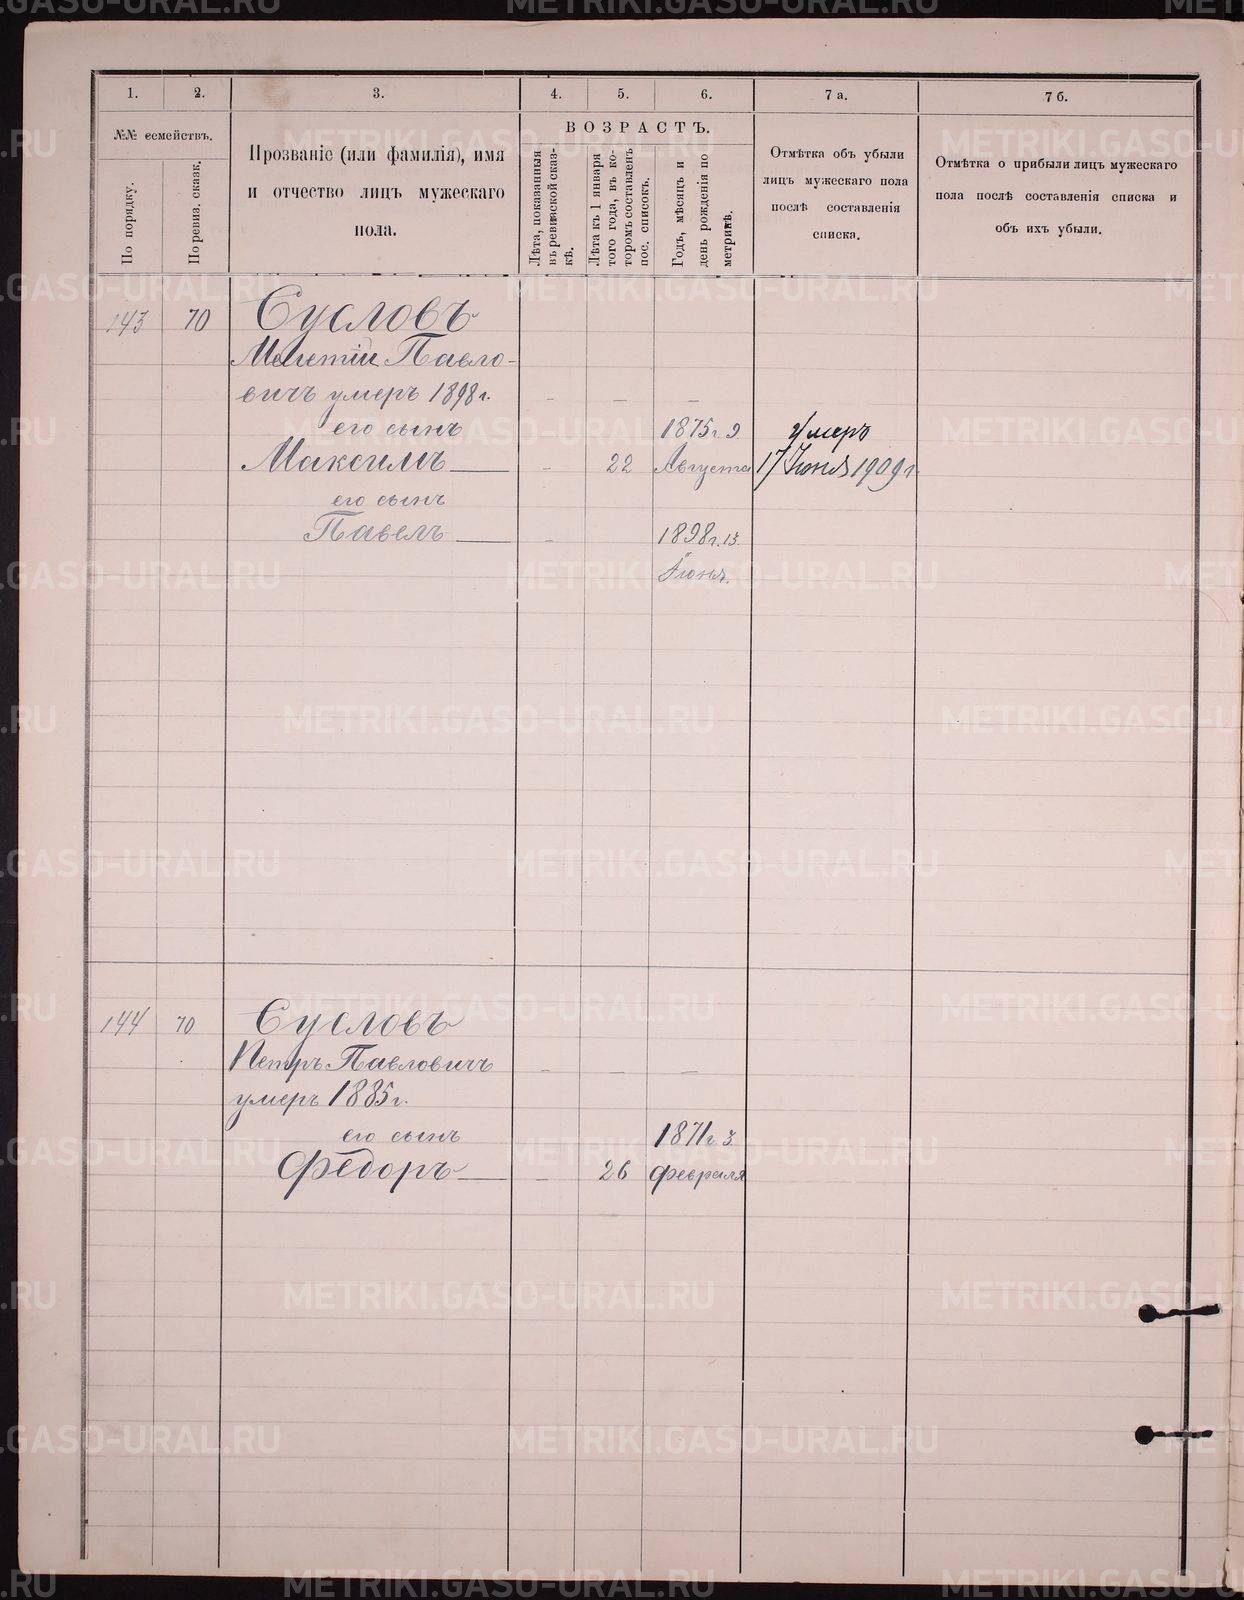 1. 2. 3. 4. 5. 6. 7 а. 7 б.
№№ семействъ.
По порядку.
По ревиз. сказк.
Прозваніе (или фамилія), имя
и отчество лицъ мужескаго
пола.
ВОЗРАСТЪ.
Лѣта, показанныя
въ ревизской сказ-
кѣ.
Лѣта къ 1 января
того года, въ ко-
торомъ составленъ
пос. списокъ.
Годъ, мѣсяцъ и
день рожденія по
метрикѣ.
Отмѣтка объ убыли
лицъ мужескаго пола
послѣ составленія
списка.
Отмѣтка о прибыли лицъ мужескаго
пола послѣ составленія списка и
объ ихъ убыли.
143 70 Сусловъ
Мелетій Павло-
вичъ умеръ 1898 г. – – –
его сынъ 1875 г. 9 умеръ
Максимъ — – 22 Августа 17 Іюня 1909 г.
его сынъ
Павелъ — – 1898 г. 13
Іюня.
144 70 Сусловъ
Петръ Павловичъ – – –
умеръ 1885 г.
его сынъ 1871 г. 3
Федоръ — – 26 февраля
METRIKI.GASO-URAL.RU